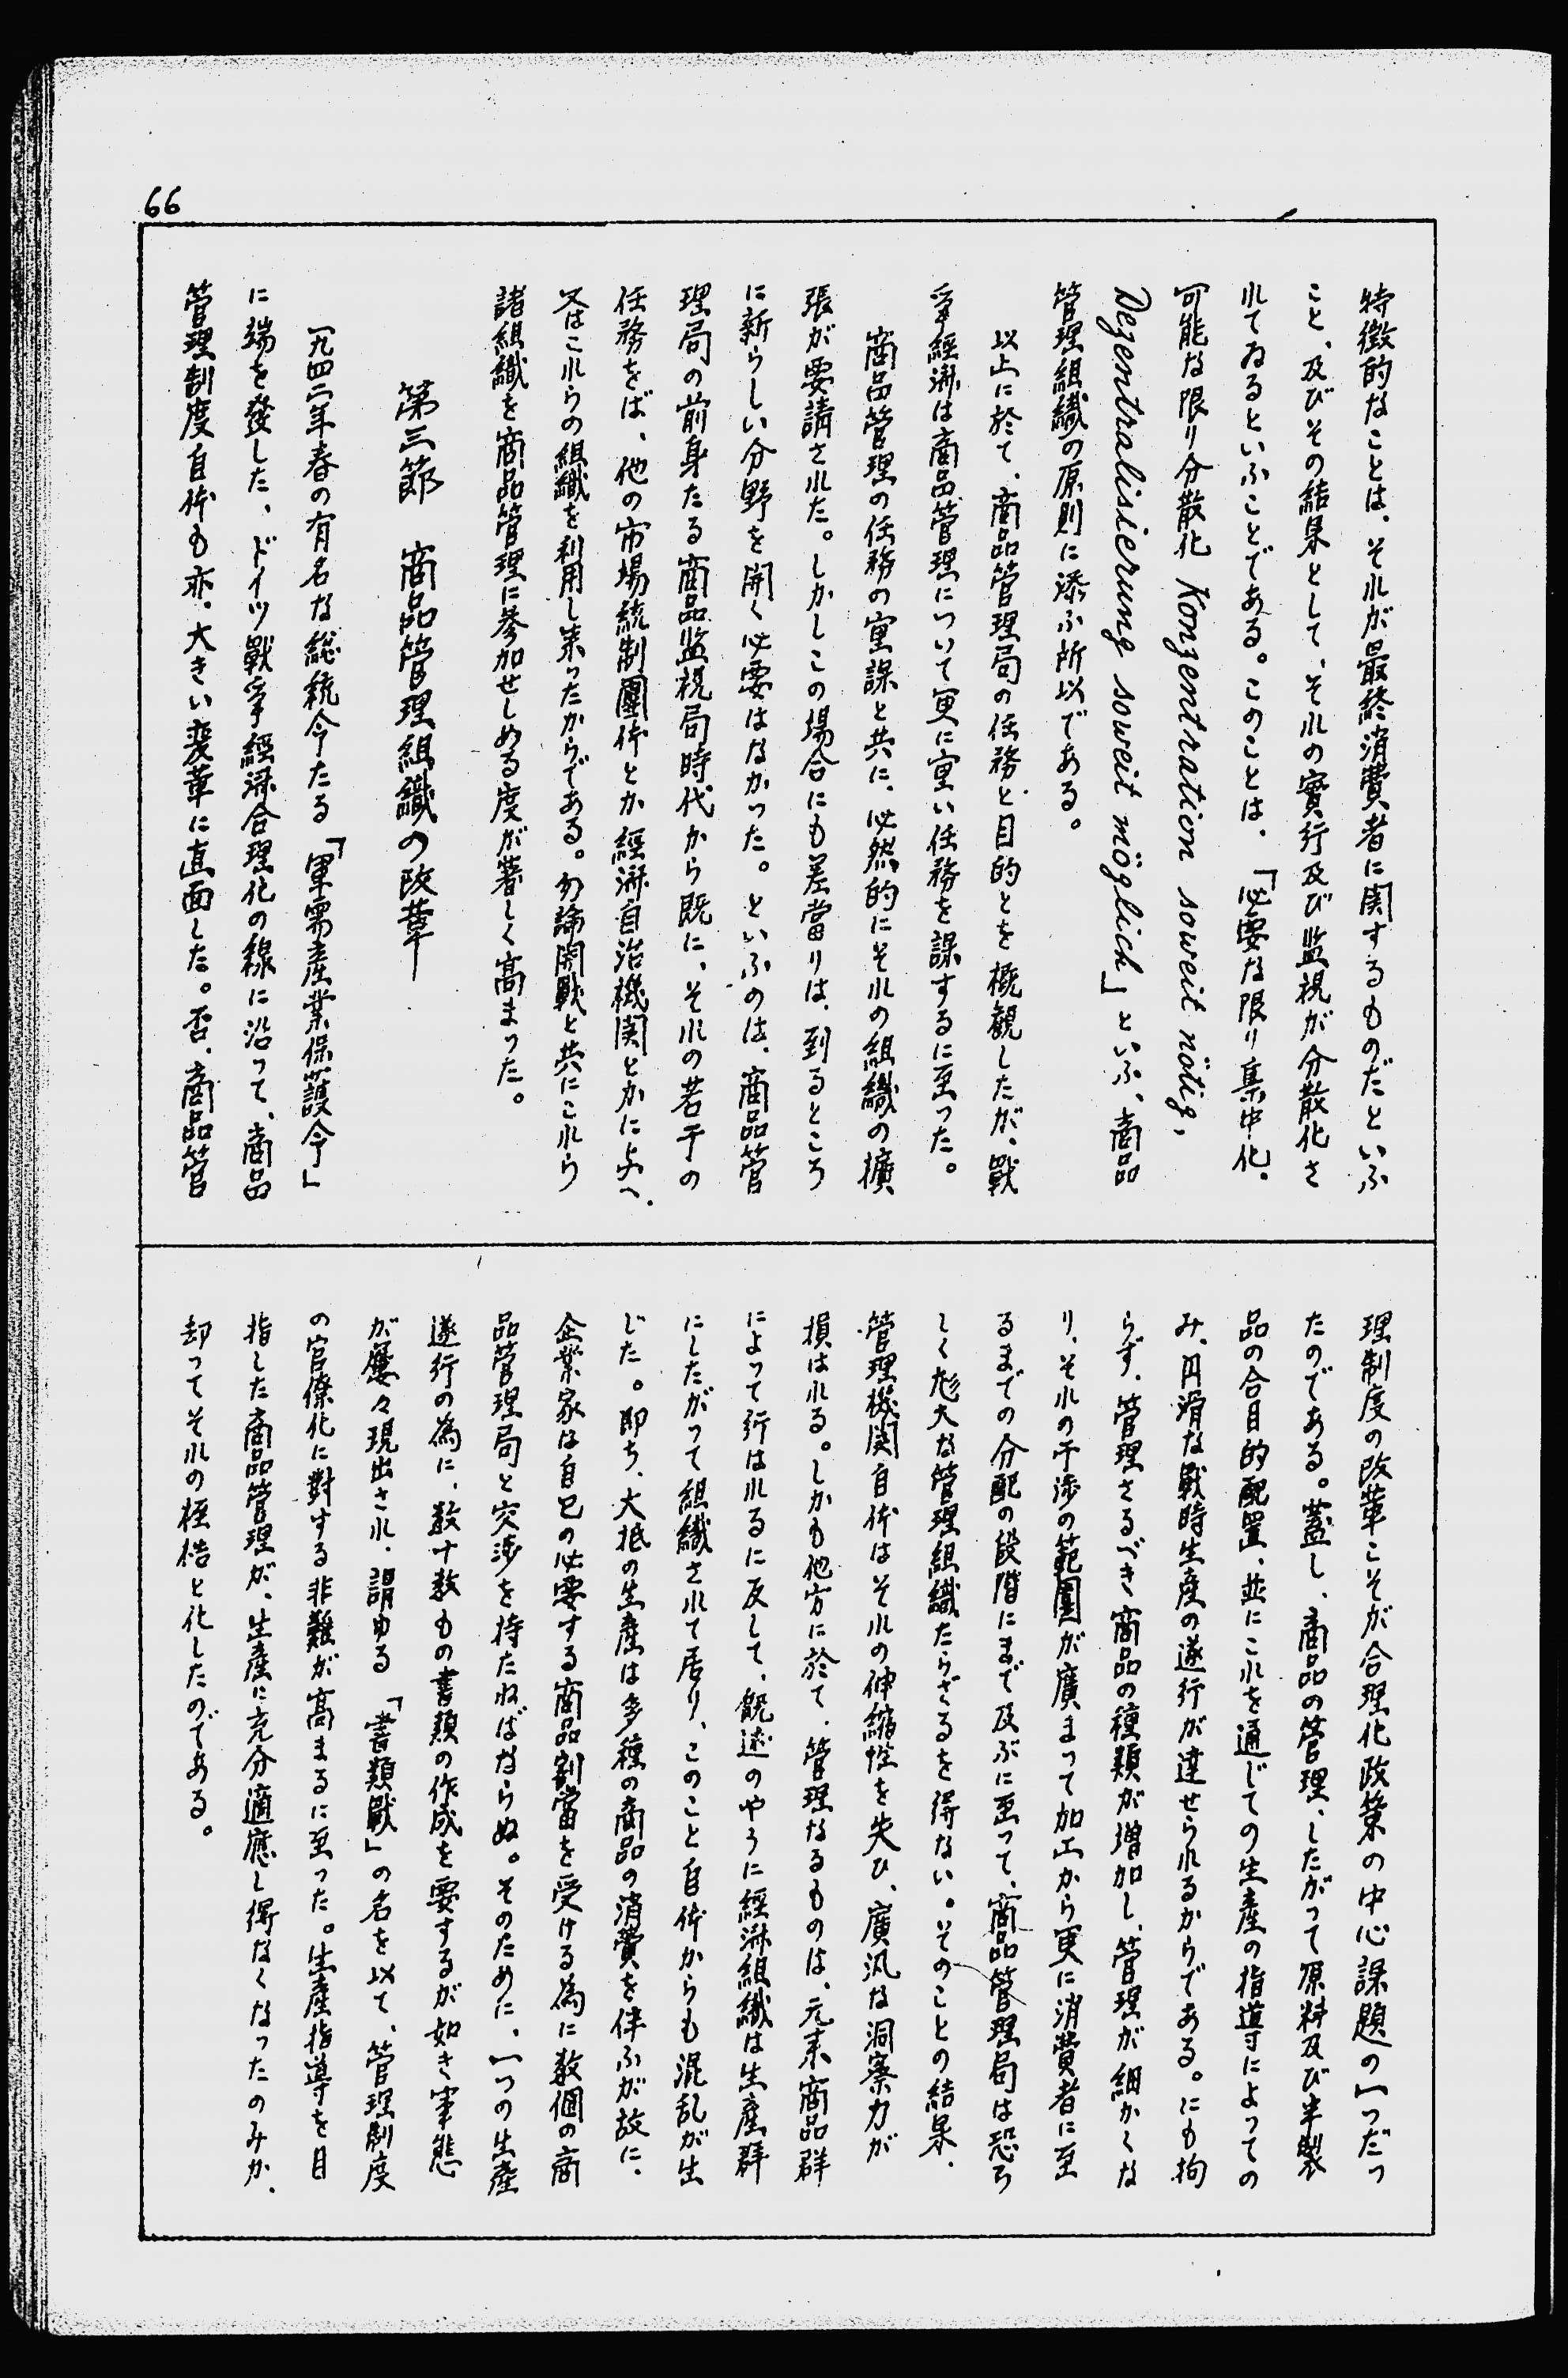 66
特徴的なことは、それが最終消費者に関するものだといふ
こと、及びその結果として、それの實行及び監視が分散化さ
れてゐるといふことである。このことは、「必要な限り集中化、
可能な限り分散化 Konzentration soweit nötig,
Dezentralisierung soweit möglich」といふ、商品
管理組織の原則に添ふ所以である。
以上に於て、商品管理局の任務と目的とを概観したが、戰
爭經済は商品管理について更に重い任務を課するに至った。
商品管理の任務の重課と共に、必然的にそれの組織の擴
張が要請された。しかしこの場合にも差當りは、到るところ
に新らしい分野を開く必要はなかった。といふのは、商品管
理局の前身たる商品監視局時代から既に、それの若干の
任務をば、他の市場統制團体とか經済自治機関とかに与へ、
又はこれらの組織を利用し来ったからである。勿論開戰と共にこれら
諸組織を商品管理に參加せしめる度が著しく高まった。
第三節　商品管理組織の改革
一九四二年春の有名な総統令たる「軍需產業保護令」
に端を發した、ドイツ戰爭經済合理化の線に沿って、商品
管理制度自体も亦、大きい変革に直面した。否、商品管
理制度の改革こそが合理化政策の中心課題の一つだっ
たのである。蓋し、商品の管理、したがって原料及び半製
品の合目的配置、並にこれを通じての生產の指導によっての
み、円滑な戰時生產の遂行が達せられるからである。にも拘
らず、管理さるべき商品の種類が増加し、管理が細かくな
り、それの干渉の範圍が廣まって加工から更に消費者に至
るまでの分配の段階にまで及ぶに至って、商品管理局は恐ろ
しく尨大な管理組織たらざるを得ない。そのことの結果、
管理機関自体はそれの伸縮性を失ひ、廣汎な洞察力が
損はれる。しかも他方に於て、管理なるものは、元来商品群
によって行はれるに反して、既述のやうに經済組織は生產群
にしたがって組織されて居り、このこと自体からも混乱が生
じた。即ち、大抵の生產は多種の商品の消費を伴ふが故に、
企業家は自己の必要する商品割當を受ける為に数個の商
品管理局と交渉を持たねばならぬ。そのために、一つの生產
遂行の為に、数十数もの書類の作成を要するが如き事態
が屡々現出され、謂ゆる「書類戰」の名を以て、管理制度
の官僚化に對する非難が高まるに至った。生產指導を目
指した商品管理が、生產に充分適應し得なくなったのみか、
却ってそれの桎梏と化したのである。